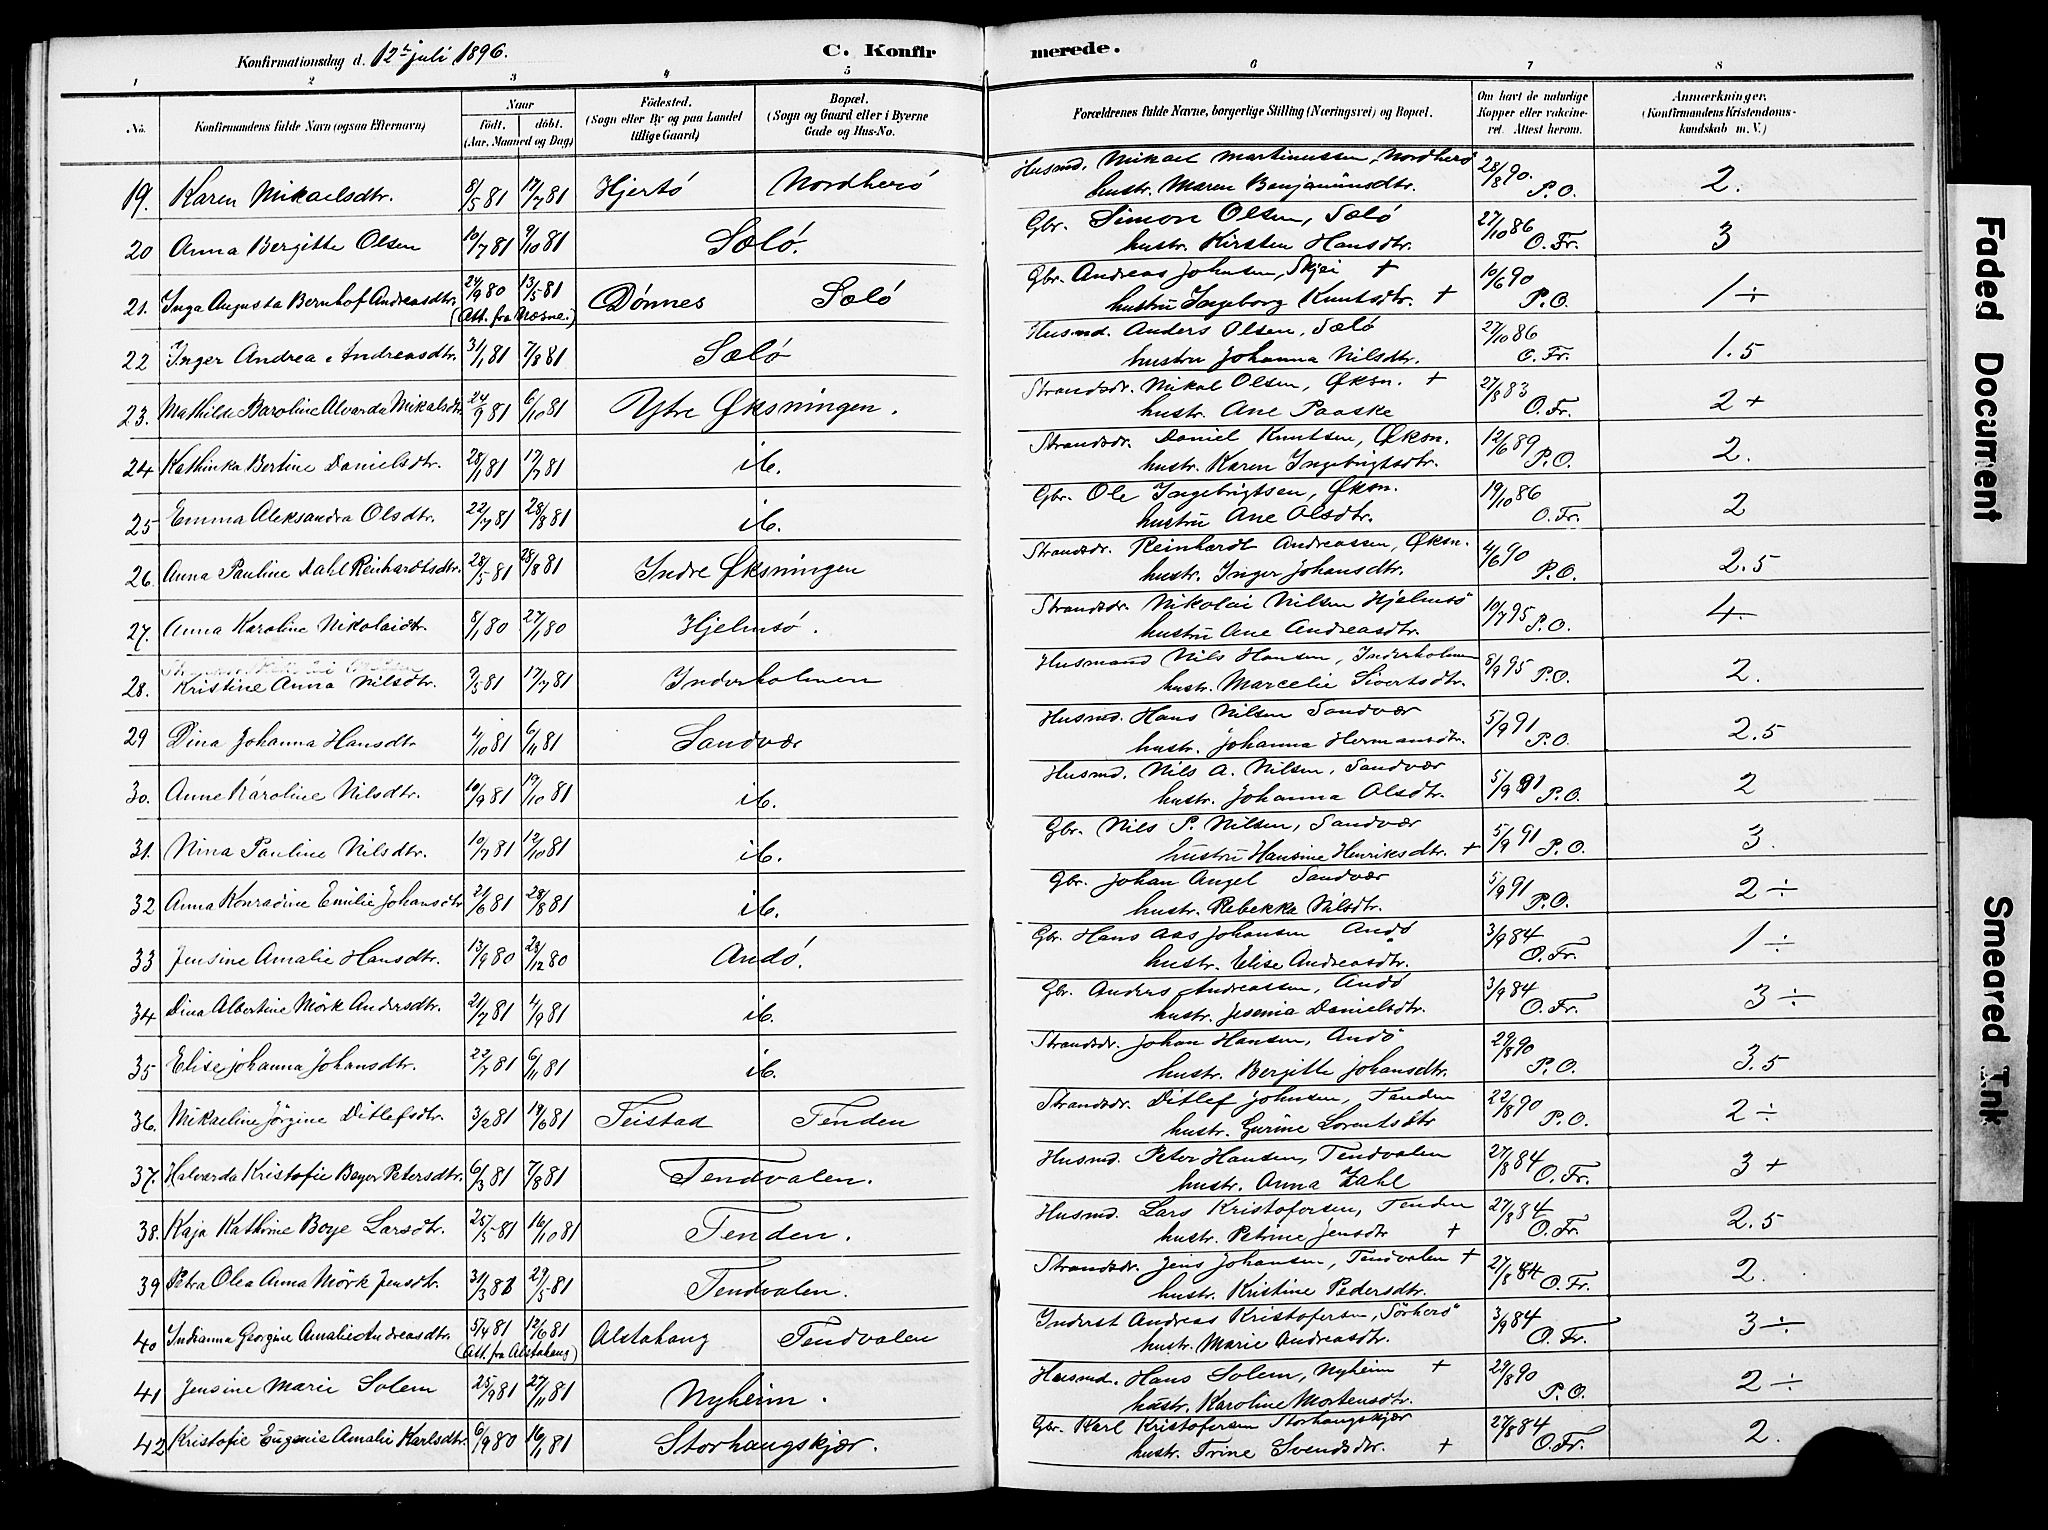 Konfirmationsdag d. 12te juli 1896. C. Konfirmerede.
1 2 3 4 5 6 7 8
No. Konfirmandens fulde Navn (ogsaa Efternavn) Naar Födt. döbt. (Aar, Maaned og Dag) Födested. (Sogn eller By og paa Landet tillige Gaard) Bopæl. (Sogn og Gaard eller i Byerne Gade og Hus-No. Forældrenes fulde Navne, borgerlige Stilling (Næringsvei) og Bopæl. Om havt de naturlige Kopper eller vaccineret. Attest herom. Anmærkninger. (Konfirmandens Kristendomskundskab m. V.)
19. Karen Mikaelsdtr. 8/5 81 17/7 81 Hjertö Nordherö Husmd. Mikael Martinussen, Nordherö 28/8 90. P.O. 2.
hustr. Maren Benjaminsdtr.
20 Anna Bergitte Olsen 10/7 81 9/10 81 Sælö. Gbr. Simon Olsen, Sælö 27/10 86 O. Fr. 3
hustr. Kirsten Hansdtr.
21. Inga Augusta Bernhof Andreasdtr. 24/9 80 13/5 81 Dönnes Sælö Gbr. Andreas Johnsen, Skjei + 10/6 90 P.O. 1 ÷
(Att. fra ) hustru Ingeborg Knutsdtr. +
22 Inger Andrea Andreasdtr. 31/1 81 7/8 81 Sælö Husmd. Anders Olsen, Sælö 27/10 86 O. Fr. 1.5
hustru Johanna Nilsdtr.
23. Mathilde Baroline Alvarda Mikalsdtr 24/9 81 6/10 81 Ytre Øksningen. Strandsdr. Mikal Olsen, Øksn. + 27/8 83 O. Fr. 2 +
hustr. Ane Paaske
24 Kathinka Bertine Danielsdtr. 28/1 81 17/7 81 ib. Strandsdr. Daniel Knutsen, Øksn. 12/6 89 P.O. 2.
hustr. Karen Ingebrigtsdtr.
25 Emma Aleksandra Olsdtr. 22/7 81 28/8 81 ib. Gbr. Ole Ingebrigtsen, Øksn. 19/10 86 O. Fr. 2
hustru Ane Olsdtr.
26. Anna Pauline Dahl Reinhardtsdtr. 28/5 81 28/8 81 Indre Øksningen Strandsdr. Reinhardt Andreassen, Øksn. 4/6 90 P.O. 2.5
hustr. Inger Johansdtr.
27. Anna Karoline Nikolaidtr. 8/1 80 27/1 80 Hjelmsö. Strandsdr. Nikolai Nilsen Hjelmsö 10/7 95 P.O. 4
hustru Ane Andreasdtr.
28. Kristine Anna Nilsdtr. 2/5 81 17/7 81 Inderholmen Husmand Nils Hansen, Inderholmen 8/9 95 P.O. 2.
hustr. Marcelie Sivertsdtr.
29 Dina Johanna Hansdtr 4/10 81 6/11 81 Sandvær Husmd. Hans Nilsen Sandvær 5/9 91 P.O. 2.5
hustr. Johanna Hermansdtr.
30. Anne Karoline Nilsdtr. 10/9 81 19/10 81 ib. Husmd. Nils A. Nilsen, Sandvær 5/9 91 P.O. 2
hustr. Johanna Olsdtr.
31. Nina Pauline Nilsdtr. 10/7 81 12/10 81 ib. Gbr. Nils P. Nilsen, Sandvær 5/9 91 P.O. 3.
hustru Hansine Henriksdtr. +
32 Anna Konradine Emilie Johansdtr 21/6 81 28/8 81 ib. Gbr. Johan Angel Sandvær 5/9 91 P.O. 2 ÷
hustr. Rebekka Nilsdtr.
33 Jensine Amalie Hansdtr. 13/9 80 29/12 80 Andö. Gbr. Hans Aas Johansen Andö 3/9 84 O. Fr. 1 ÷
hustr. Elise Andreasdtr.
34 Dina Albertine Mörk Andersdtr. 21/7 81 4/9 81 ib. Gbr. Anders Andreassen, Andö 3/9 84 O. Fr. 3 ÷
hustr. Jesenia Danielsdtr.
35 Elise Johanna Johansdtr. 22/7 81 6/11 81 ib. Strandsdr. Johan Hansen, Andö 29/8 90 P.O. 3.5
hustr. Bergitte Johansdtr.
36. Mikaeline Jörgine Ditlefsdtr. 3/2 81 19/6 81 Teistad Tenden Strandsdr. Ditlef Johnsen, Tenden 22/8 90 P.O. 2 ÷
hustr. Gurine Lorentsdtr
37. Halvarda Kristofie Beyer Petersdtr. 6/3 81 7/8 81 Tendvalen. Husmd. Peter Hansen, Tendvalen 27/8 84 O. Fr. 3 +
hustr. Anna Zahl
38. Kaja Kathrine Boye Larsdtr. 25/5 81 16/10 81 Tenden. Husmd. Lars Kristofersen, Tenden 27/8 84 O. Fr. 2.5
hustr. Petrine Jensdtr +
39 Petra Olea Anna Mörk Jensdtr. 31/3 81 29/5 81 Tendvalen. Strandsdr. Jens Johansen, Tendvalen + 27/8 84 O. Fr. 2.
hustr. Kristine Pedersdtr.
40 Indianna Georgine Amalie Andreasdtr. 5/4 81 12/6 81 Alstahaug Tendvalen Inderst Andreas Kristofersen, Sörherö 3/9 84 O. Fr. 3 ÷
(Att. fra Alstahaug) hustr. Marie Andreasdtr.
41 Jensine Marie Solem 25/9 81 27/11 81 Nyheim. Husmd. Hans Solem, Nyheim + 29/8 90 P.O. 2 ÷
hustr. Karoline Mortensdtr.
42 Kristofie Eugenie Amalie Karlsdtr. 6/9 80 16/1 81 Storhaugskjær. Gbr. Karl Kristofersen Storhaugskjær 27/8 84 O. Fr. 2.
hustr. Trine Svendsdtr. +
Faded Document
Smeared Ink